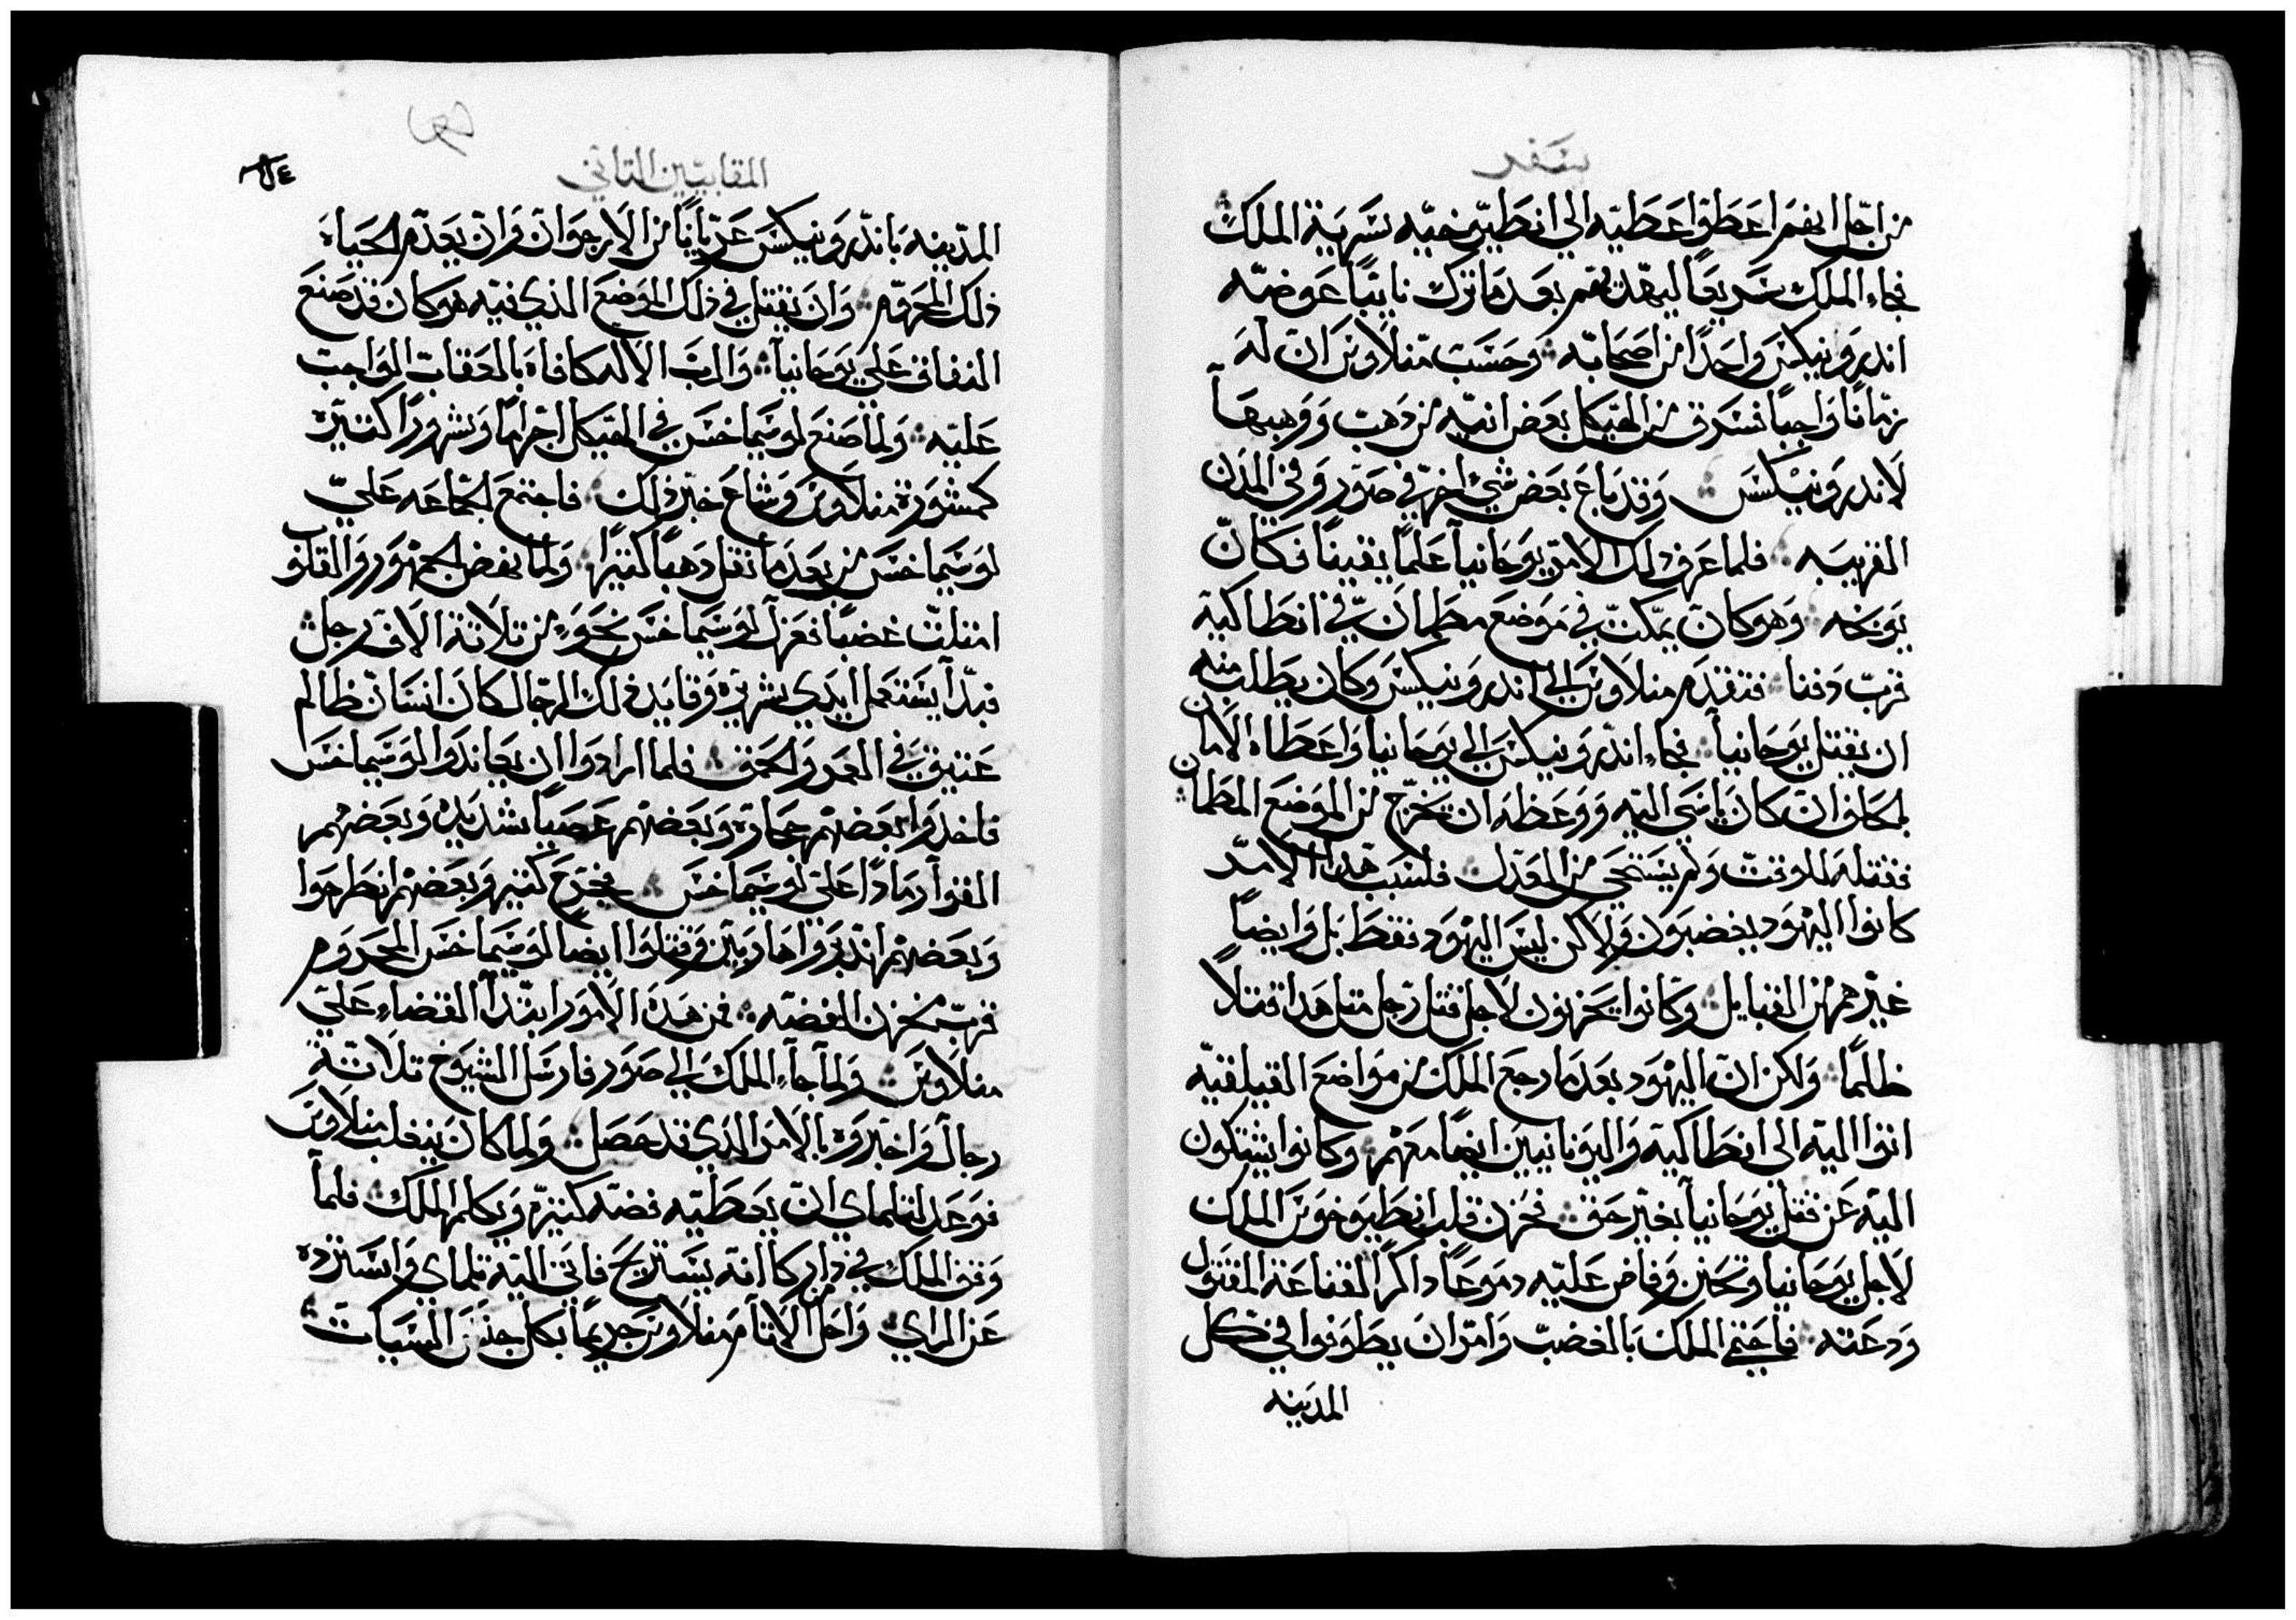 سفر
من اجل انهم اعطوا عطيه الي انطيوخيه سرية الملك
فجاء الملك سريعا ليهديهم بعد ما ترك نايبا عوضه
اندرونيكس واحدا من اصحابه وحسب منلاوس ان له
زمانا واجبا فسرق من الهيكل بعض انيه من دهب ووهبها
لاندرونيكس وقد باع بعض شي اخر في صور وفي المدن
القريبه فلما عرف ذلك الامر يوحانيا علما يقينا فكان
يوبخه وهو كان يمكث في موضع مطمان في انطاكية
قرب دفنا فتقدم منلاوس الي اندرونيكس وكان يطلب منه
ان يقتل يوحانيا فجاء اندرونيكس الي يوحانيا واعطاه الامان
بحلف ان كان ياسي اليه ووعظه ان يخرج من الموضع المطمان
فقتله للوقت ولم يستحي من العدل فلسبب هذا الامر
كانوا اليهود يغضبون ولاكن ليس اليهود فقط بل وايضا
غيرهم من القبايل وكانوا يحزنون لاجل قتل رجل متل هدا قتلا
ظلما ولكن ان اليهود بعد ما رجع الملك من مواضع القيلقيه
اتوا اليه الي انطاكية واليونانيين ايضا معهم وكانوا يشتكون
اليه عن قتل يوحانيا بغير حق فحزن قلب انطيوخوس الملك
لاجل يوحانيا وتحنن وفاض عليه دموعا داكرا لقناعة المقتول
ودعته فاحتم الملك بالغضب وامر ان يطوفوا في كل
المدينه
المقابيين التاني
المدينه باندرونيكس عريانا من الارجوان وان يعدم الحياه
ذلك المحروم وان يقتل في ذلك الموضع الذي فيه هو كان قد صنع
النفاق علي يوحانيا والرب الاله كافاه بالعقاب الواجب
عليه ولما صنع لوسيماخس في الهيكل اجراما وشرورا كتيره
كمشورة منلاوس وشاع خبر ذلك فاجتمع الجماعه علي
لوسيماخس من بعد ما نقل دهبا كتيرا ولما نهض الجمهور والقلوب
امتلت غضبا فعزل لوسيماخس نحو من تلاتة الاف رجل
فبدا يستعمل ايدي شريره وقايد ذلك الرجال كان انسان ظالم
عتيق في العمر والحمق فلما ارادوا ان يعاندوا لوسيماخس
فاخدوا بعضهم حجاره وبعضهم عصيا شديده وبعضهم
القوا رمادا علي لوسيماخس فجرح كتير وبعضهم انطرحوا
وبعضهم اندروا هاربين وقتلوا ايضا لوسيماخس المحروم
قرب مخزن الفضه فمن هذه الامور ابتدا القضاء علي
منلاوس ولما جاء الملك الي صور فارسل الشيوخ تلاتة
رجال واخبروه بالامر الذي قد حصل ولما كان ينغلب منلاوس
فوعد لتلماي ان يعطيه فضه كتيره ويكلم الملك فلما
وقف الملك في دار كانه يستريح فاتي اليه تلماي واسترده
عن الراي واحل الاتام منلاوس جريما بكل جنس السيات